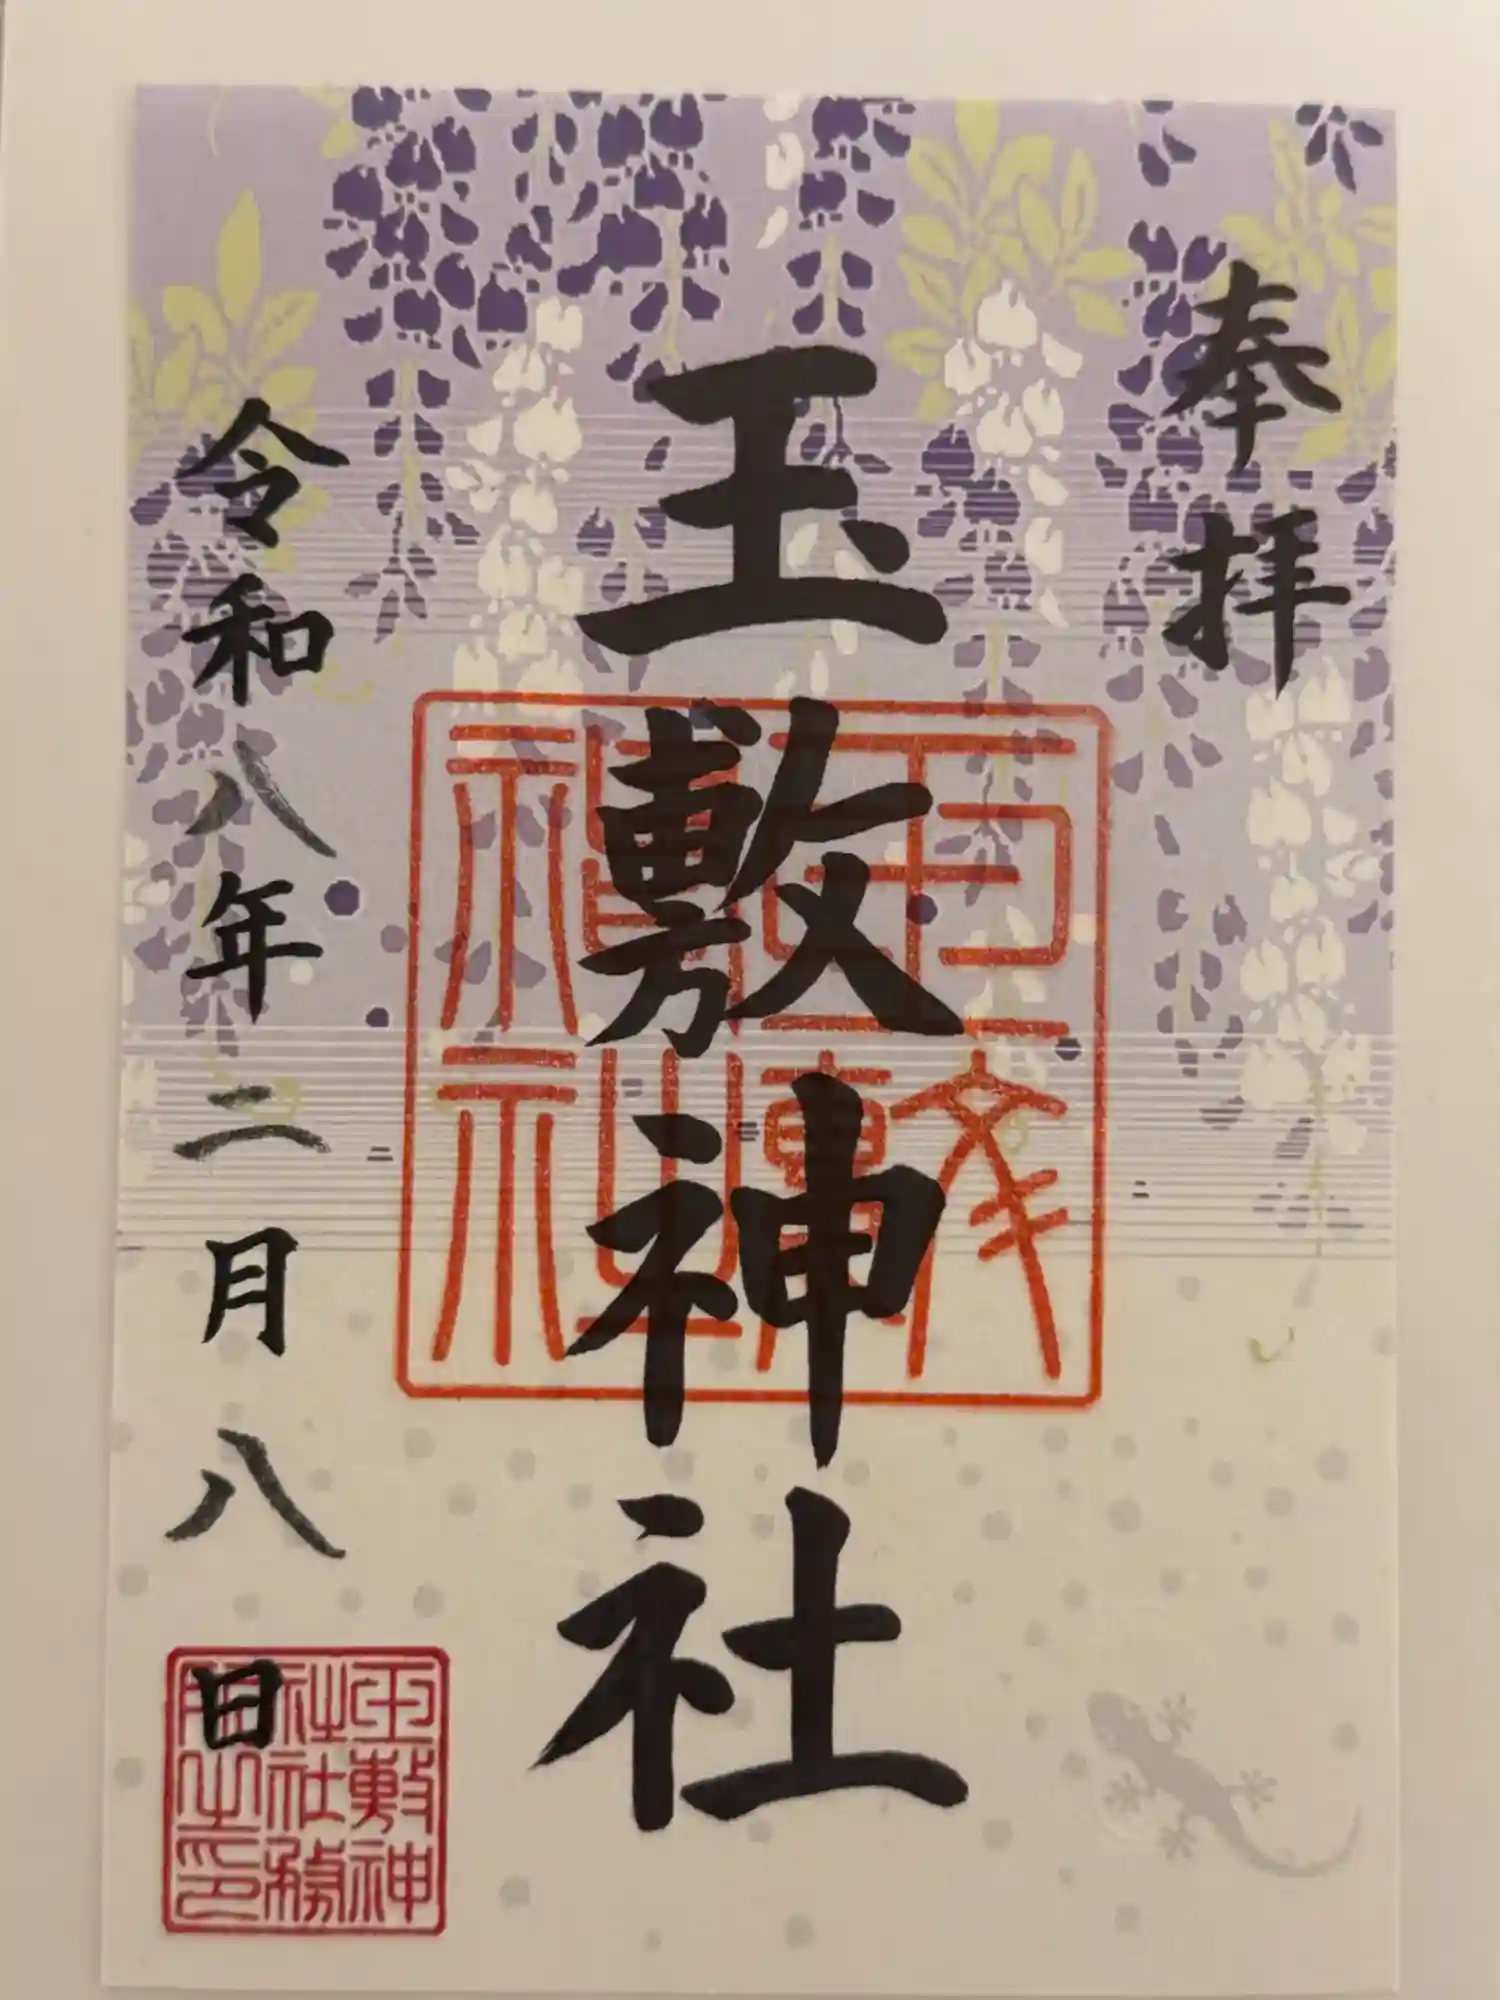 奉拝
玉敷神社
令和八年二月八日
玉敷神社
玉敷神社社務所之印